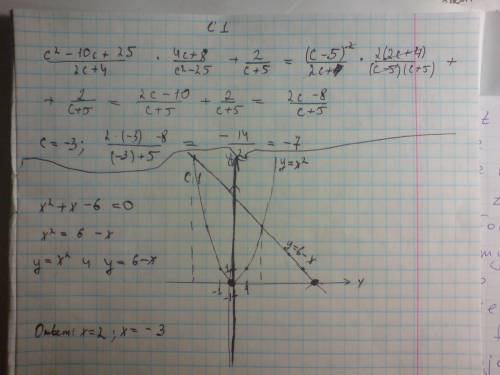 C1
(c² − 10c + 25)/(2c+4) · (4c+8)/(c²−25) + 2/(c+5) = (c−5)²/(2c+4) · 2(2c+4)/((c−5)(c+5)) +
+ 2/(c+5) = (2c−10)/(c+5) + 2/(c+5) = (2c−8)/(c+5)
c = −3; (2·(−3) −8)/((−3)+5) = −14/2 = −7
y=x²
x² + x − 6 = 0
x² = 6 − x
y = x² и y = 6−x
y=6−x
x
−1 1
Ответ: x=2; x= −3